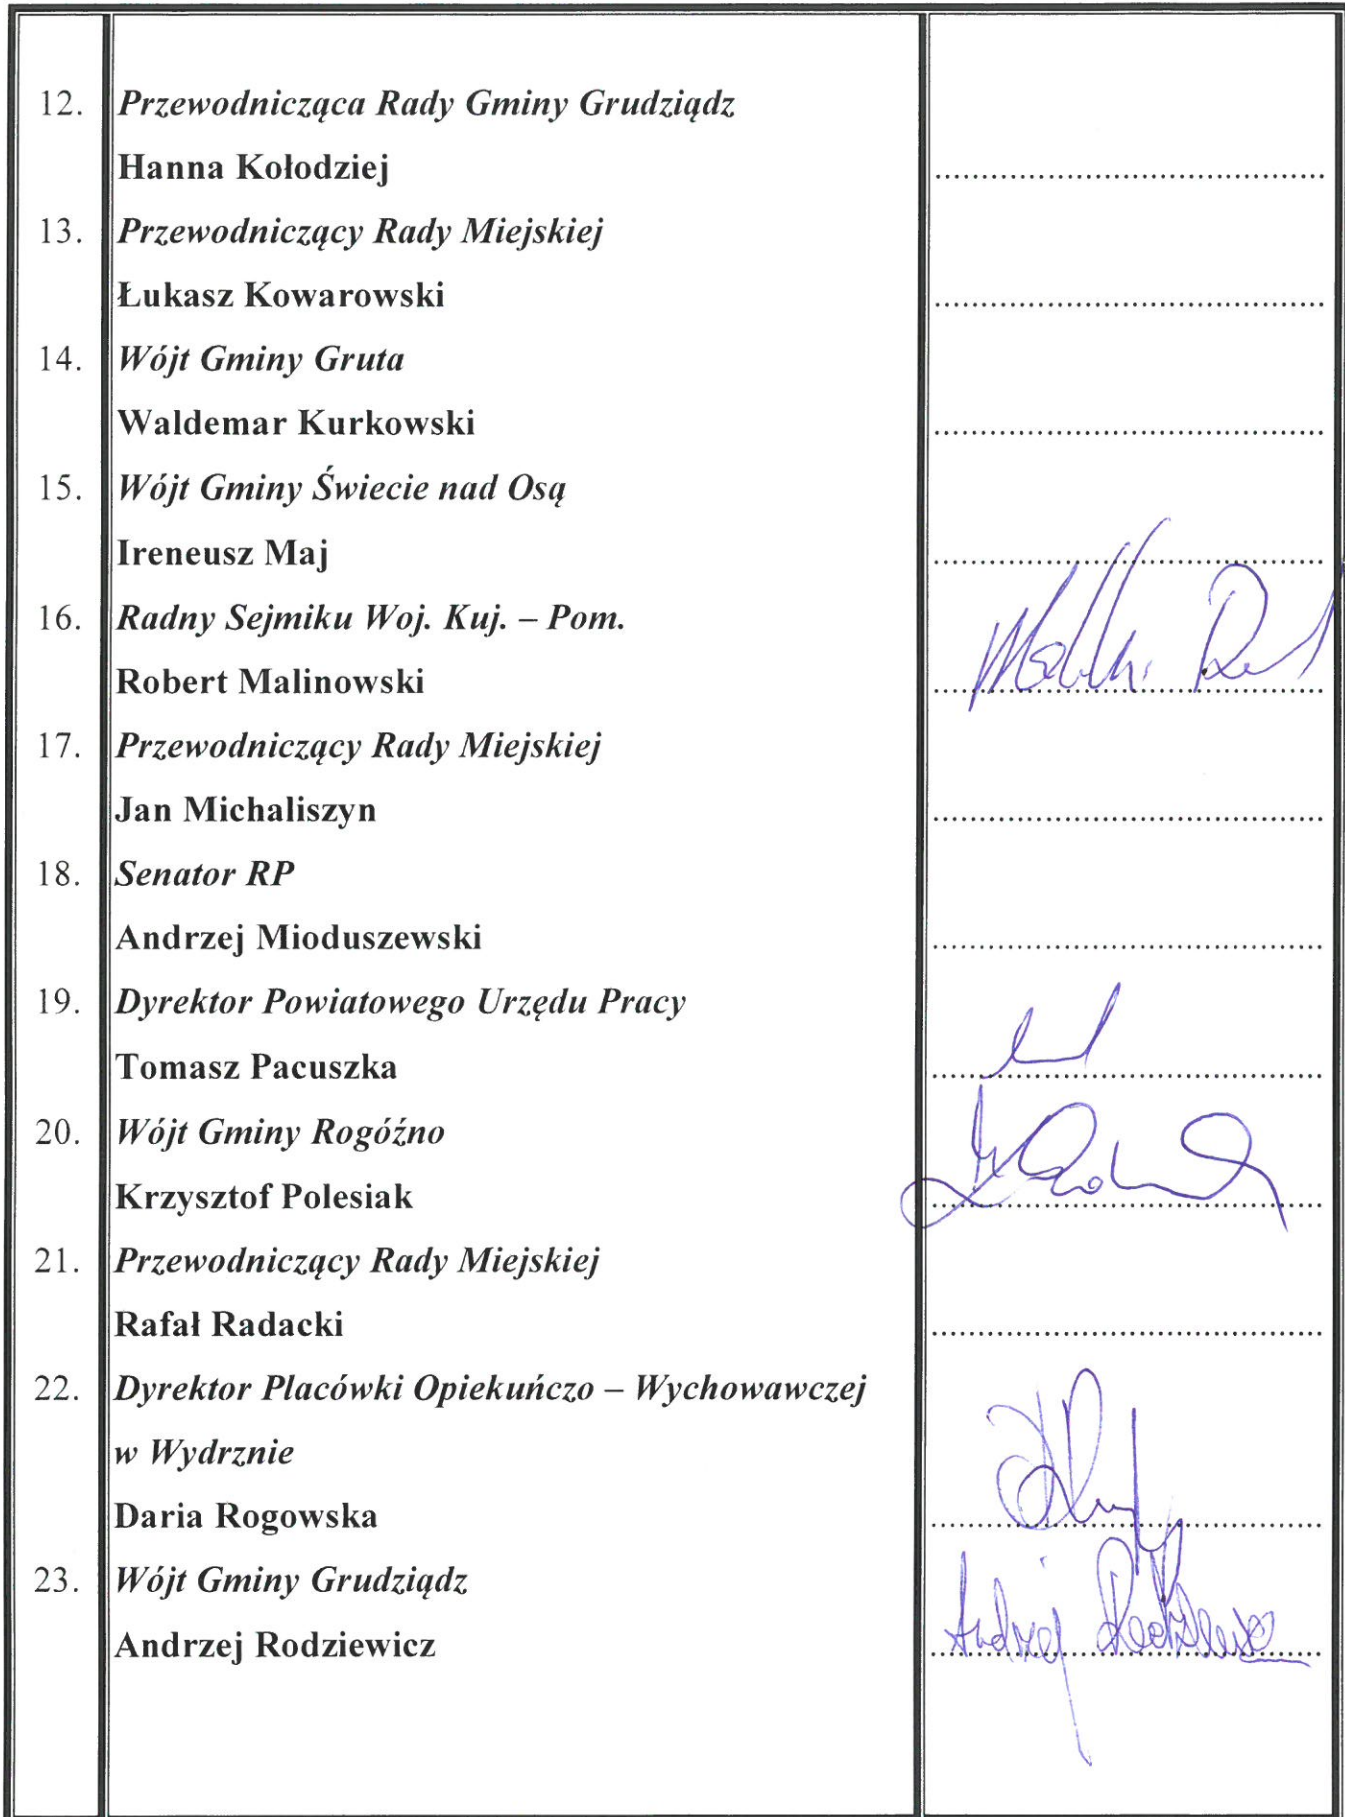 12. Przewodnicząca Rady Gminy Grudziądz
Hanna Kołodziej ........................................
13. Przewodniczący Rady Miejskiej
Łukasz Kowarowski ........................................
14. Wójt Gminy Gruta
Waldemar Kurkowski ........................................
15. Wójt Gminy Świecie nad Osą
Ireneusz Maj ........................................
16. Radny Sejmiku Woj. Kuj. – Pom.
Robert Malinowski ........................................
17. Przewodniczący Rady Miejskiej
Jan Michaliszyn ........................................
18. Senator RP
Andrzej Mioduszewski ........................................
19. Dyrektor Powiatowego Urzędu Pracy
Tomasz Pacuszka ........................................
20. Wójt Gminy Rogóźno
Krzysztof Polesiak ........................................
21. Przewodniczący Rady Miejskiej
Rafał Radacki ........................................
22. Dyrektor Placówki Opiekuńczo – Wychowawczej
w Wydrznie
Daria Rogowska ........................................
23. Wójt Gminy Grudziądz
Andrzej Rodziewicz ........................................ Andrzej